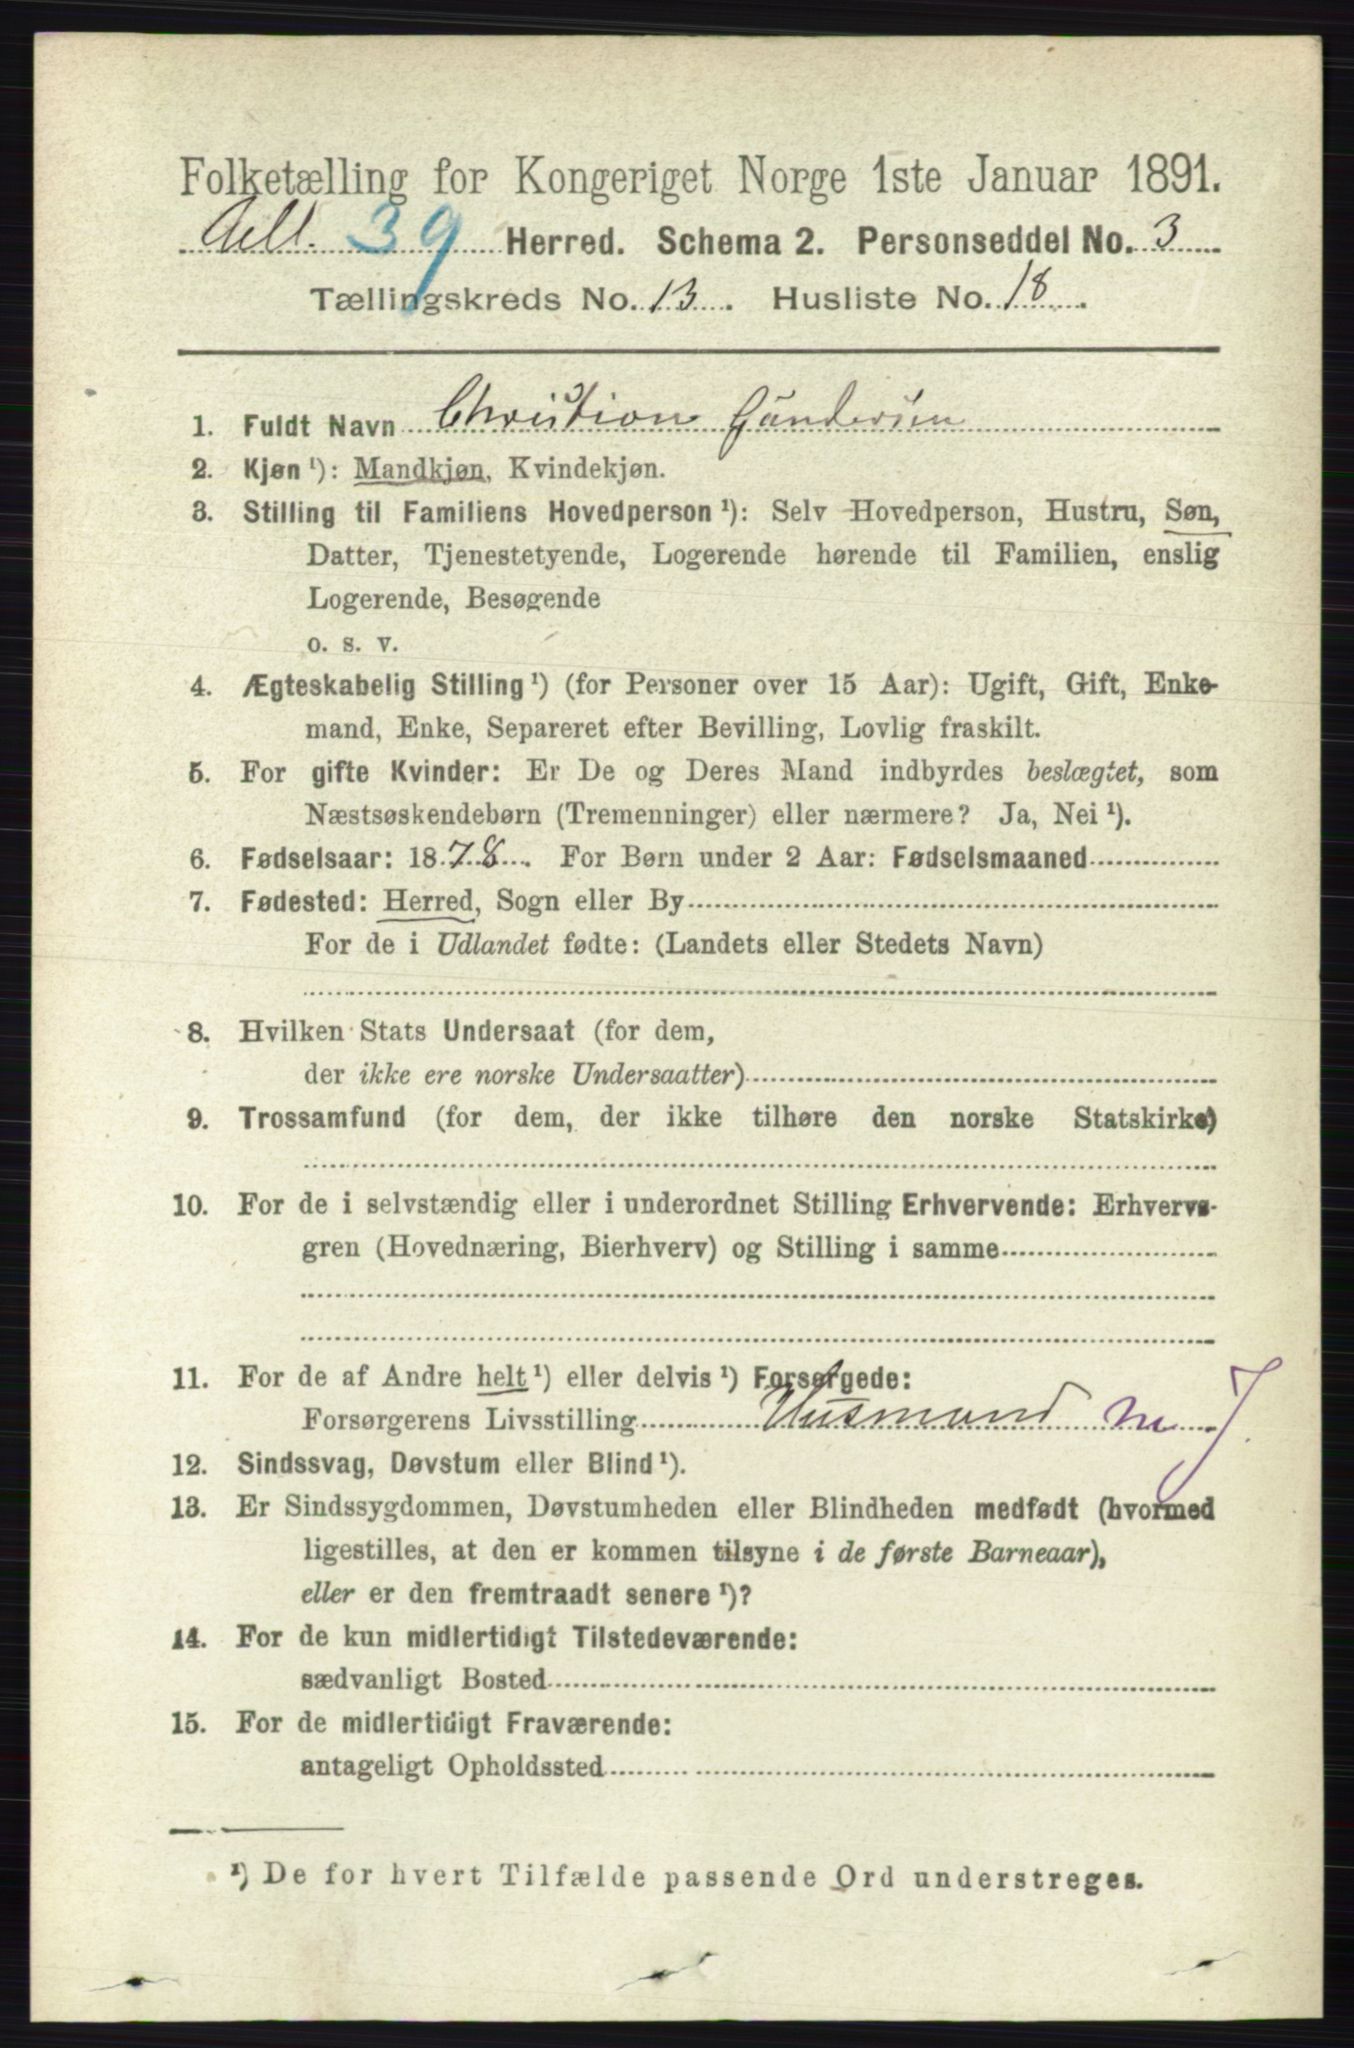 Folketælling for Kongeriget Norge 1ste Januar 1891.
39 Herred. Schema 2. Personseddel No. 3
Tællingskreds No. 13. Husliste No. 18.
1. Fuldt Navn Christian Gundersen
2. Kjøn ¹): Mandkjøn, Kvindekjøn.
3. Stilling til Familiens Hovedperson ¹): Selv Hovedperson, Hustru, Søn,
Datter, Tjenestetyende, Logerende hørende til Familien, enslig
Logerende, Besøgende
o. s. v.
4. Ægteskabelig Stilling ¹) (for Personer over 15 Aar): Ugift, Gift, Enke-
mand, Enke, Separeret efter Bevilling, Lovlig fraskilt.
5. For gifte Kvinder: Er De og Deres Mand indbyrdes beslægtet, som
Næstsøskendebørn (Tremenninger) eller nærmere? Ja, Nei ¹).
6. Fødselsaar: 1878. For Børn under 2 Aar: Fødselsmaaned
7. Fødested: Herred, Sogn eller By
For de i Udlandet fødte: (Landets eller Stedets Navn)
8. Hvilken Stats Undersaat (for dem,
der ikke ere norske Undersaatter)
9. Trossamfund (for dem, der ikke tilhøre den norske Statskirke)
10. For de i selvstændig eller i underordnet Stilling Erhvervende: Erhvervs-
gren (Hovednæring, Bierhverv) og Stilling i samme
11. For de af Andre helt ¹) eller delvis ¹) Forsørgede:
Forsørgerens Livsstilling Husmand m J.
12. Sindssvag, Døvstum eller Blind ¹).
13. Er Sindssygdommen, Døvstumheden eller Blindheden medfødt (hvormed
ligestilles, at den er kommen tilsyne i de første Barneaar),
eller er den fremtraadt senere ¹)?
14. For de kun midlertidigt Tilstedeværende:
sædvanligt Bosted
15. For de midlertidigt Fraværende:
antageligt Opholdssted
¹) De for hvert Tilfælde passende Ord understreges.